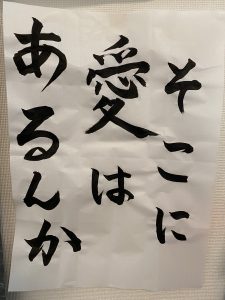 そこに
愛は
あるんか